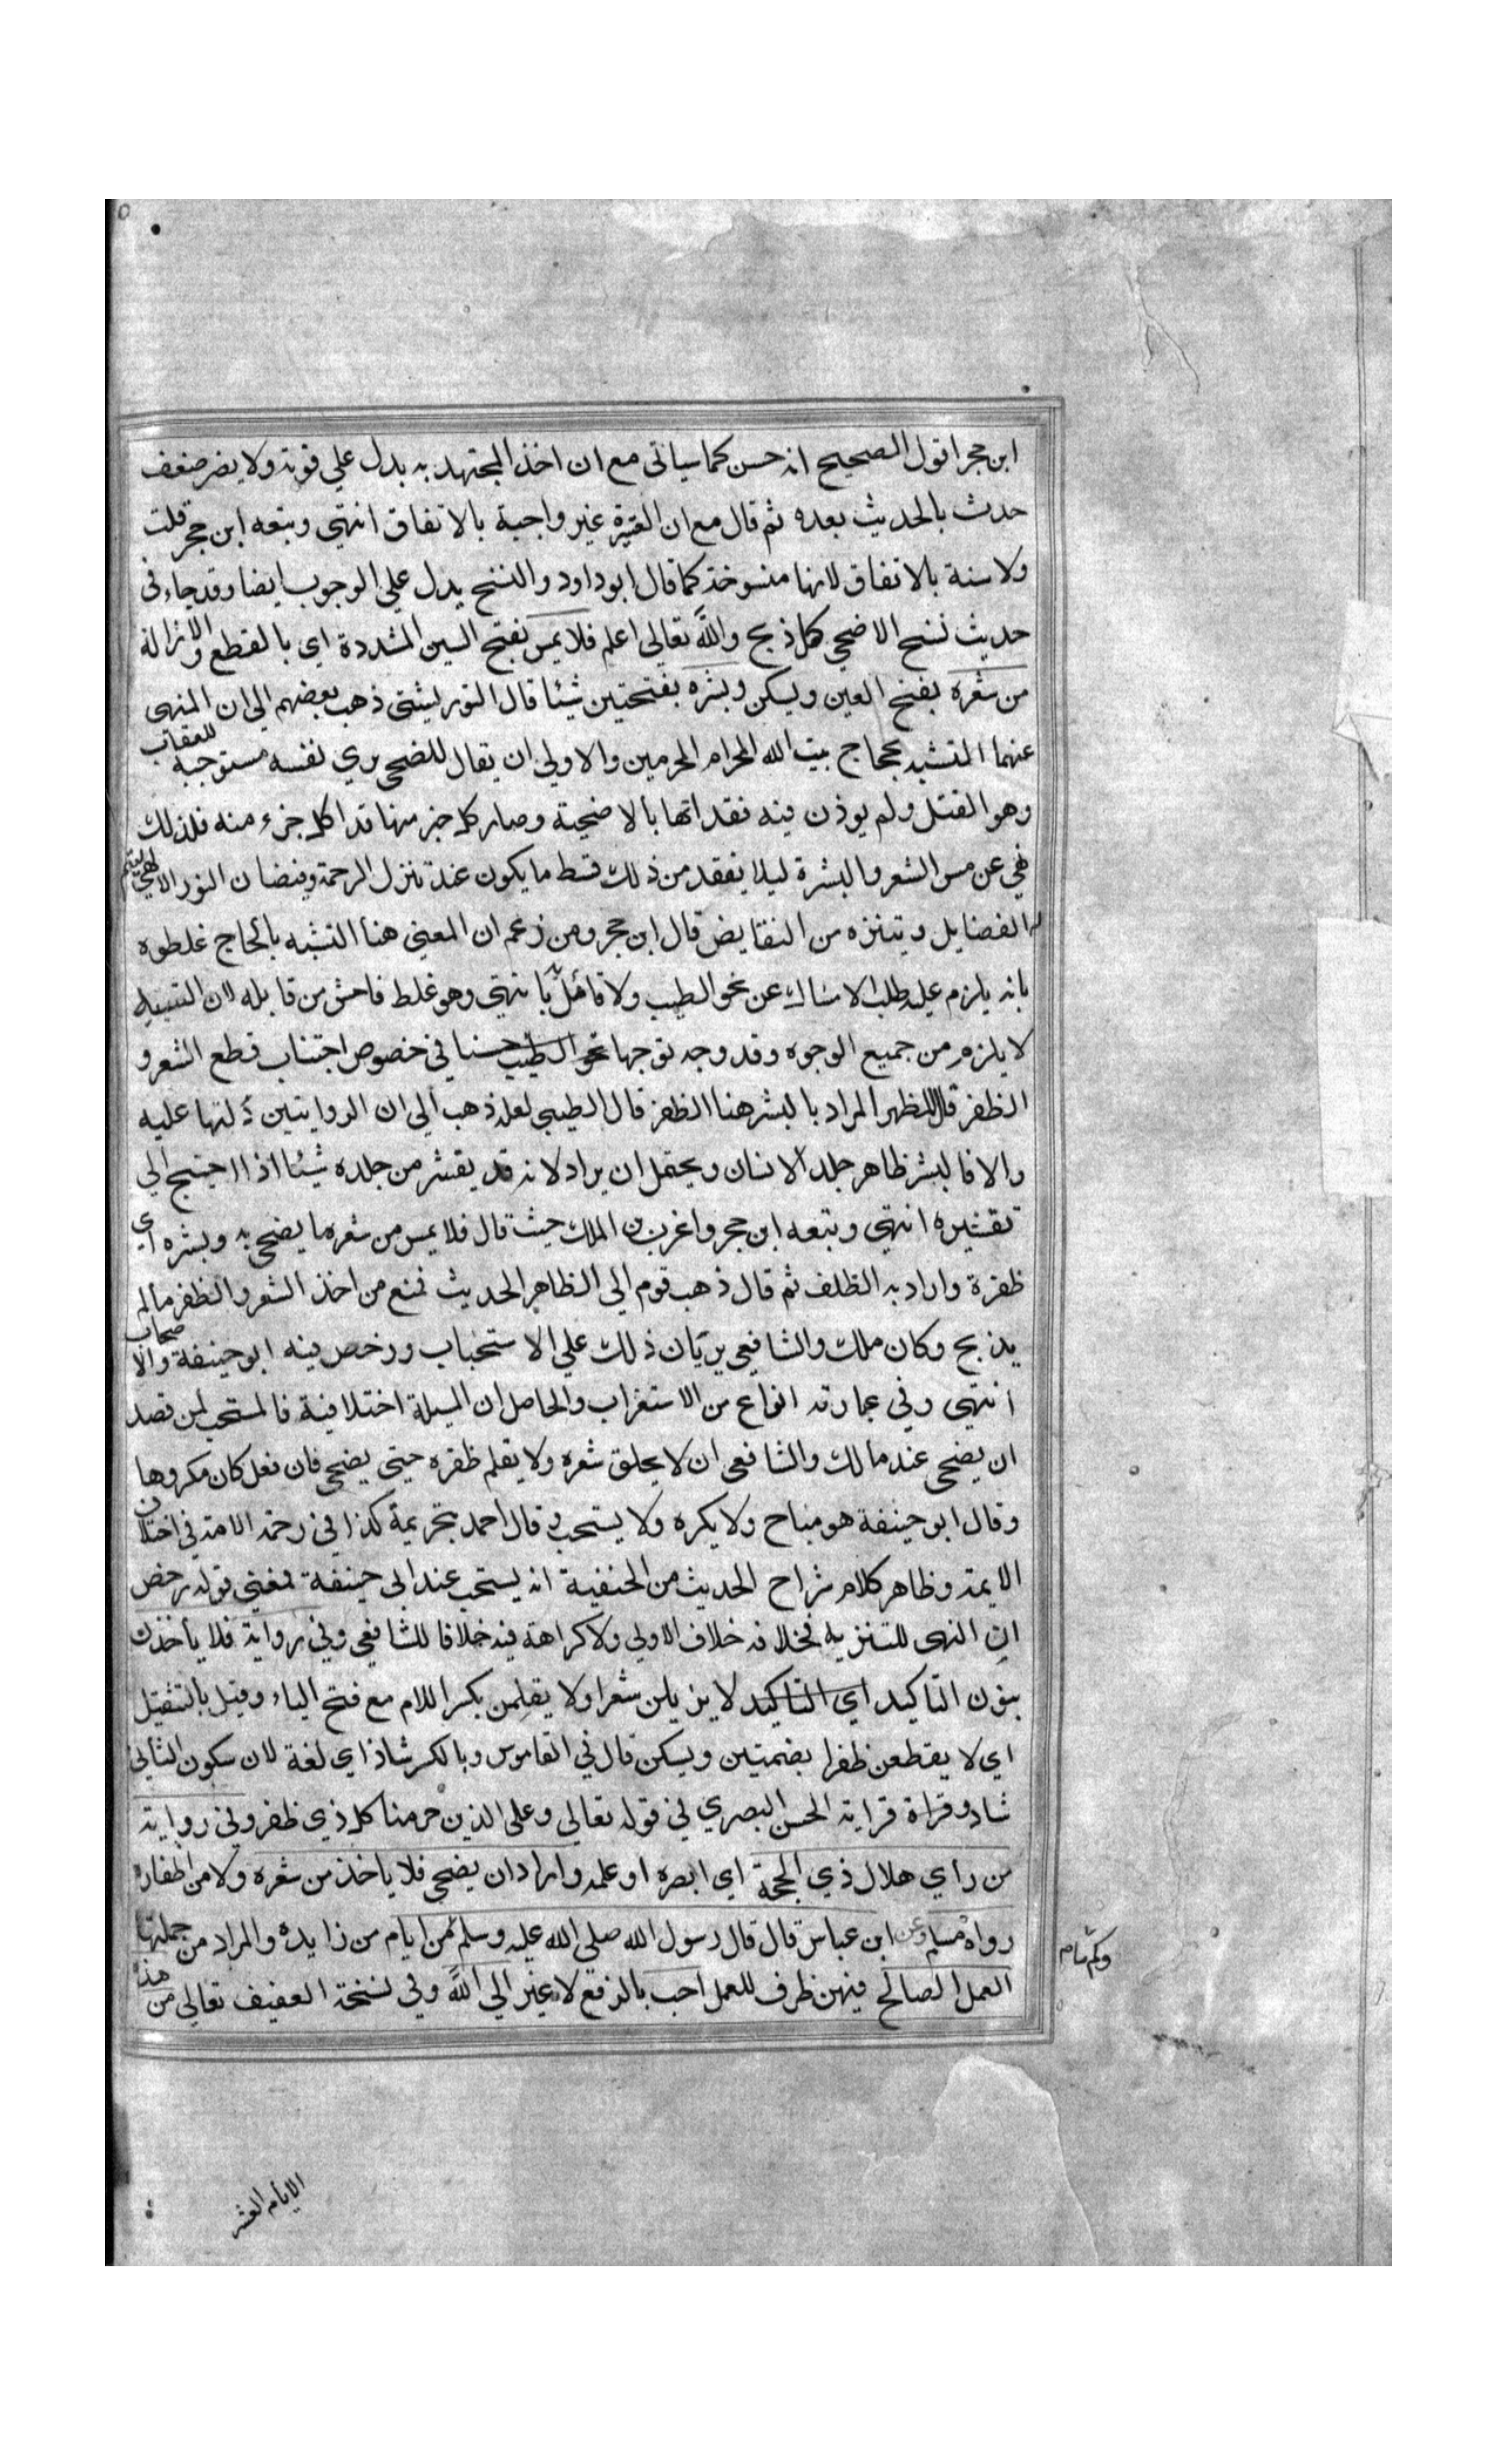 ابن حجر اقول الصحيح انه حسن كما سياتى مع ان اخذ المجتهد به يدل علي قوته ولا يضر ضعف
حدث بالحديث بعده ثم قال مع ان العتيرة غير واجبة بالاتفاق انتهي وبتعه ابن حجر قلت
ولا سنة بالاتفاق لانها منسوخة كما قال ابو داود والنسخ يدل علي الوجوب ايضا وقد جاء في
حديث نسخ الاضحي كل ذبح والله تعالى اعلم فلا يمس بفتح السين المشددة اي بالقطع والازالة
من شعره بفتح العين ويسكن وبشره بفتحتين شيئا قال التوربشتى ذهب بعضهم الى ان النهى
عنهما التشبه بحجاج بيت الله الحرام المحرمين والاولي ان يقال المضحى يري نفسه مستوجبة للعقاب
وهو القتل ولم يوذن فيه ففداها بالاضحية وصار كل جزء منها فدا كل جزء منه فلذلك
نهي عن مس الشعر والبشرة ليلا يفقد من ذلك قسط ما يكون عند تنزل الرحمة وفيضان النور الالهي ليتم
له الفضايل ويتنزه من النقايض قال ابن حجر ومن زعم ان المعني هنا التشبه بالحاج غلطوه
بانه يلزم عليه طلب الامساك عن نحو الطيب ولا قائل به انتهي وهو غلط فاحش من قايله لان التشبيه
لا يلزم من جميع الوجوه وقد وجه توجها نحو الطيب حسنا في خصوص اجتناب قطع الشعر و
الظفر قال المظهر المراد بالبشر هنا الظفر قال الطيبي لعله ذهب الي ان الروايتين دلتها عليه
والا فالبشر ظاهر جلد الانسان ويحتمل ان يراد لانه قد يقشر من جلده شيئا اذا احتيج الي
تقشيره انتهي وبتعه ابن حجر واغرب بن الملك حيث قال فلا يمس من شعره ما يضحى به وبشره اي
ظفرة واراد به الظلف ثم قال ذهب قوم الى الظاهر الحديث فمنع من اخذ الشعر والظفر مالم
يذبح وكان ملك والشافعي يريان ذلك علي الاستحباب ورخص فيه ابو حنيفة والاصحاب
انتهى وفي عبارته انواع من الاستغراب والحاصل ان المسيلة اختلافية فالمستحب لمن قصد
ان يضحى عند مالك والشافعى ان لا يحلق شعره ولا يقلم ظفره حيتى يضحى فان فعل كان مكروها
وقال ابو حنيفة هو مباح ولا يكره ولا يستحب وقال احمد بتحريمة كذا في رحمة الامة في اختلاف
الايمة وظاهر كلام شراح الحديث من الحنفية انه يستحب عند ابى حنيفة فمعني قوله رخص
ان النهى للتنزيه فخلافه خلاف الاولي ولا كراهة فيه خلافا للشافعي وفي رواية فلا ياخذن
بنون التاكيد اي التاكيد لا يزيلن شعرا ولا يقلمن بكسر اللام مع فتح الياء وقيل بالتثقيل
اي لا يقطعن ظفرا بضمتين ويسكن قال في القاموس وبالكسر شاذ اي لغة لان سكون الثاني
شاد وقراة قراية الحسن البصري في قوله تعالي وعلى الذين حرمنا كل ذي ظفر وفي رواية
من راي هلال ذي الحجة اي ابصره او علمه واراد ان يضحى فلا ياخذ من شعره ولا من اظفاره
رواه مسلم وعن ابن عباس قال قال رسول الله صلي الله عليه وسلم من ايام من زايدة والمراد من جملتها
العمل الصالح فيهن ظرف للعمل احب بالرفع لا غير الي الله وفي نسخة العفيف تعالي من هذه
الايام العشر